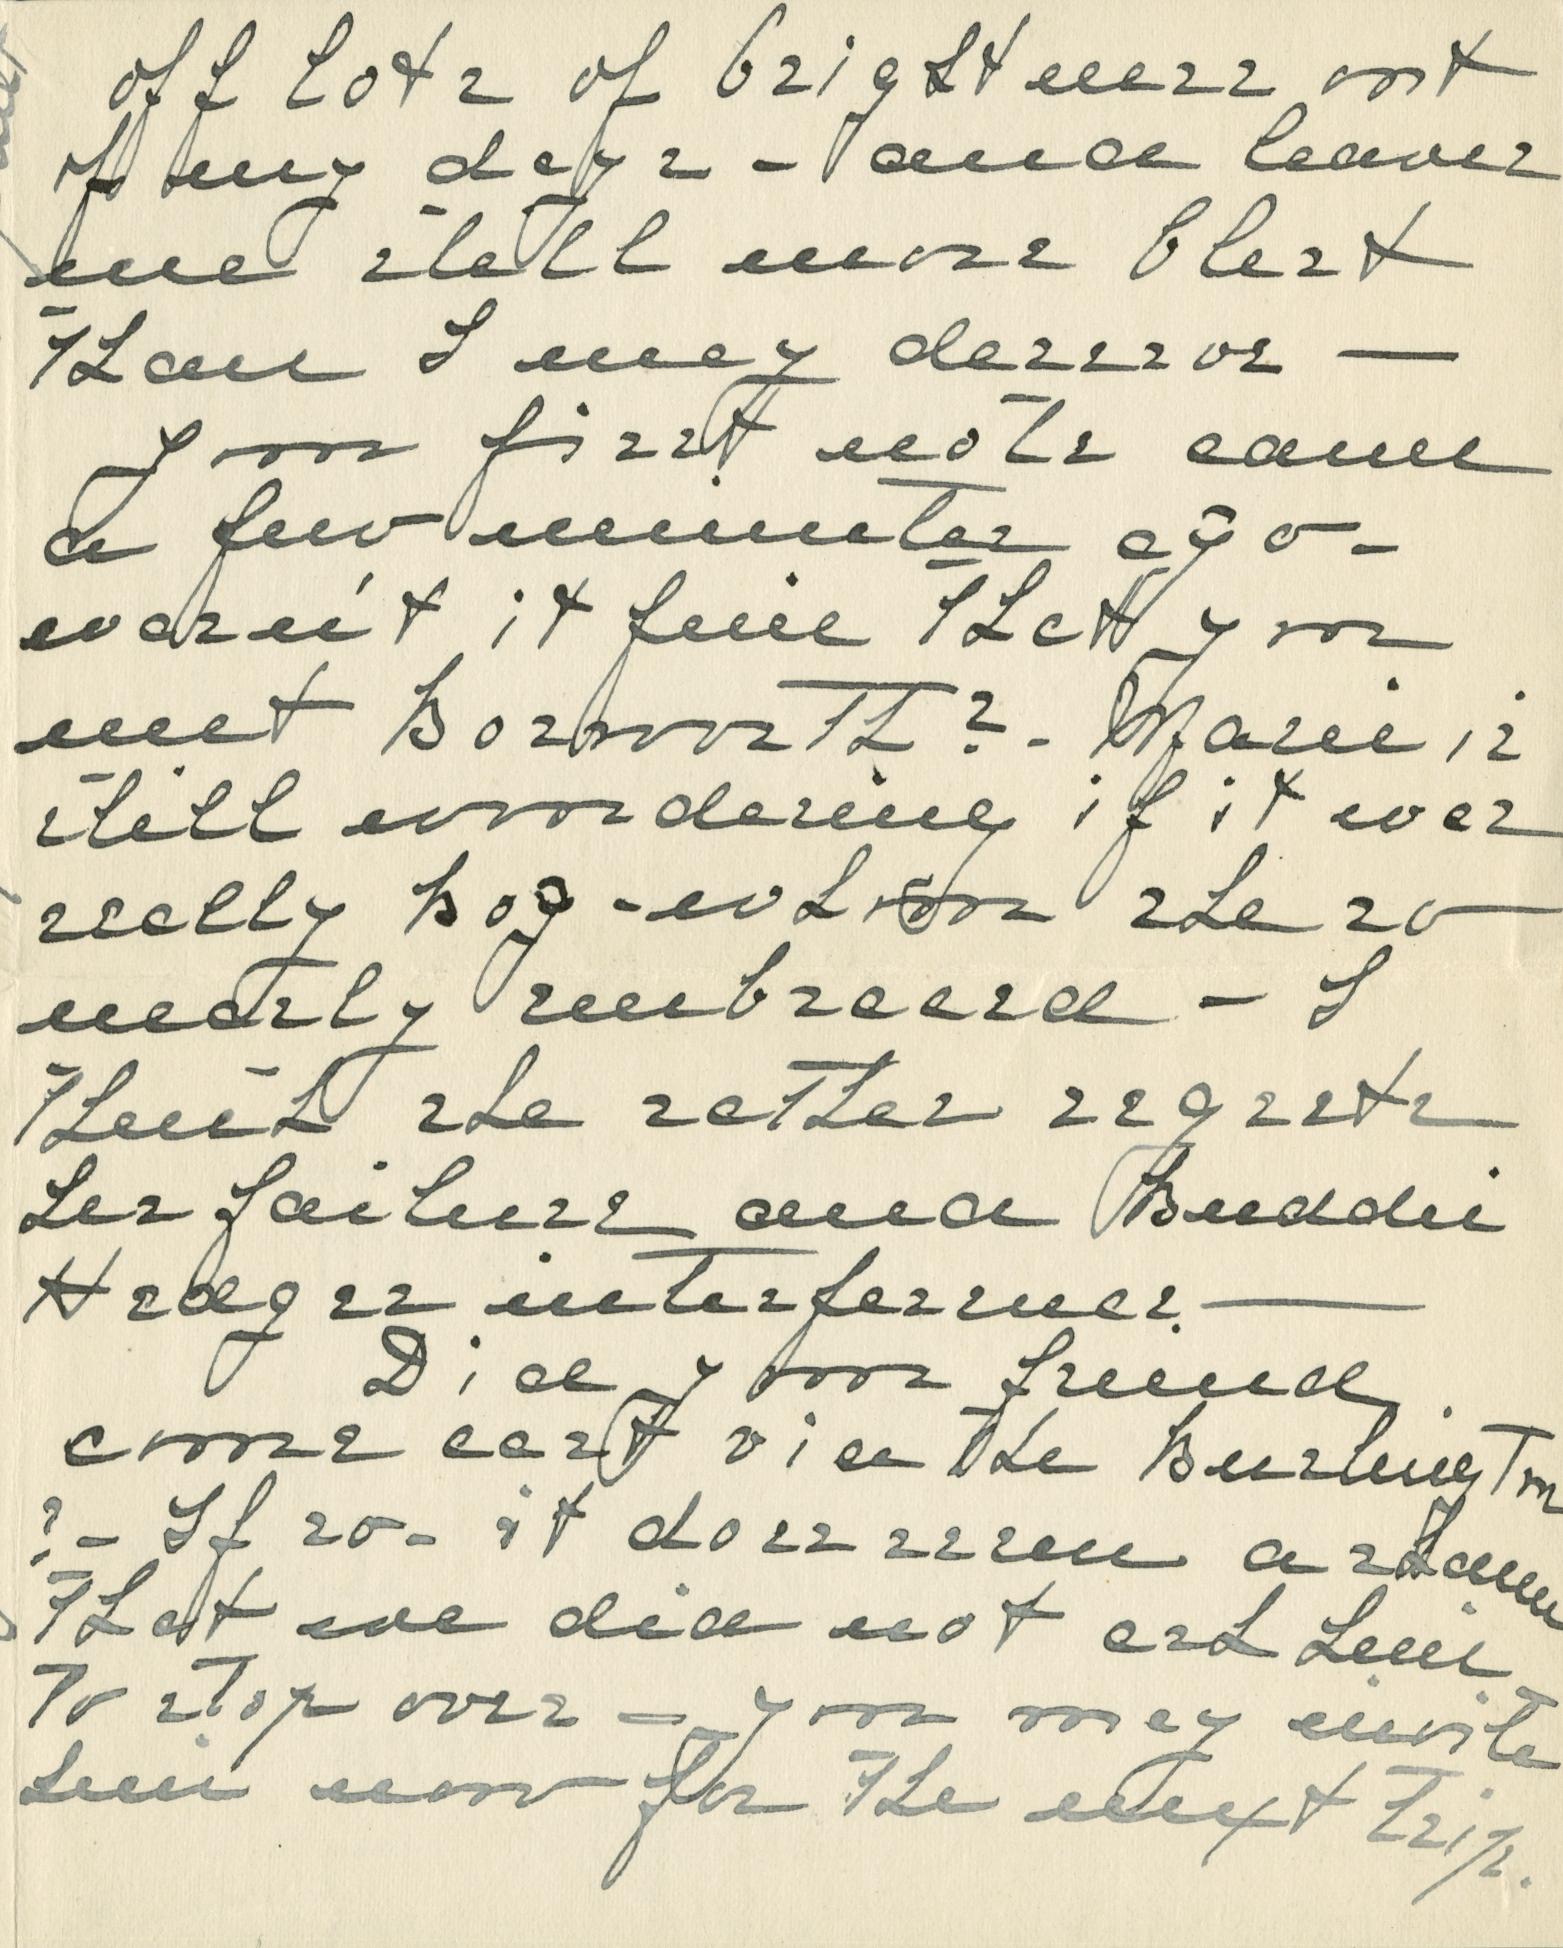 off lots of brightness out
of my days - and leaves
me still more blest
than I may deserve —
Your first note came
a few minutes ago -
wasn't it fine that you
met Bosworth? - Marie is
still wondering if it was
really Boz - whom she so
nearly embraced - I
think she rather regrets
her failure and Buddie
interferences —
Did your friend
come east via the Burlington
? - If so - it does seem a shame
that we did not ask him
to stop over - you may invite
him now for the next trip.